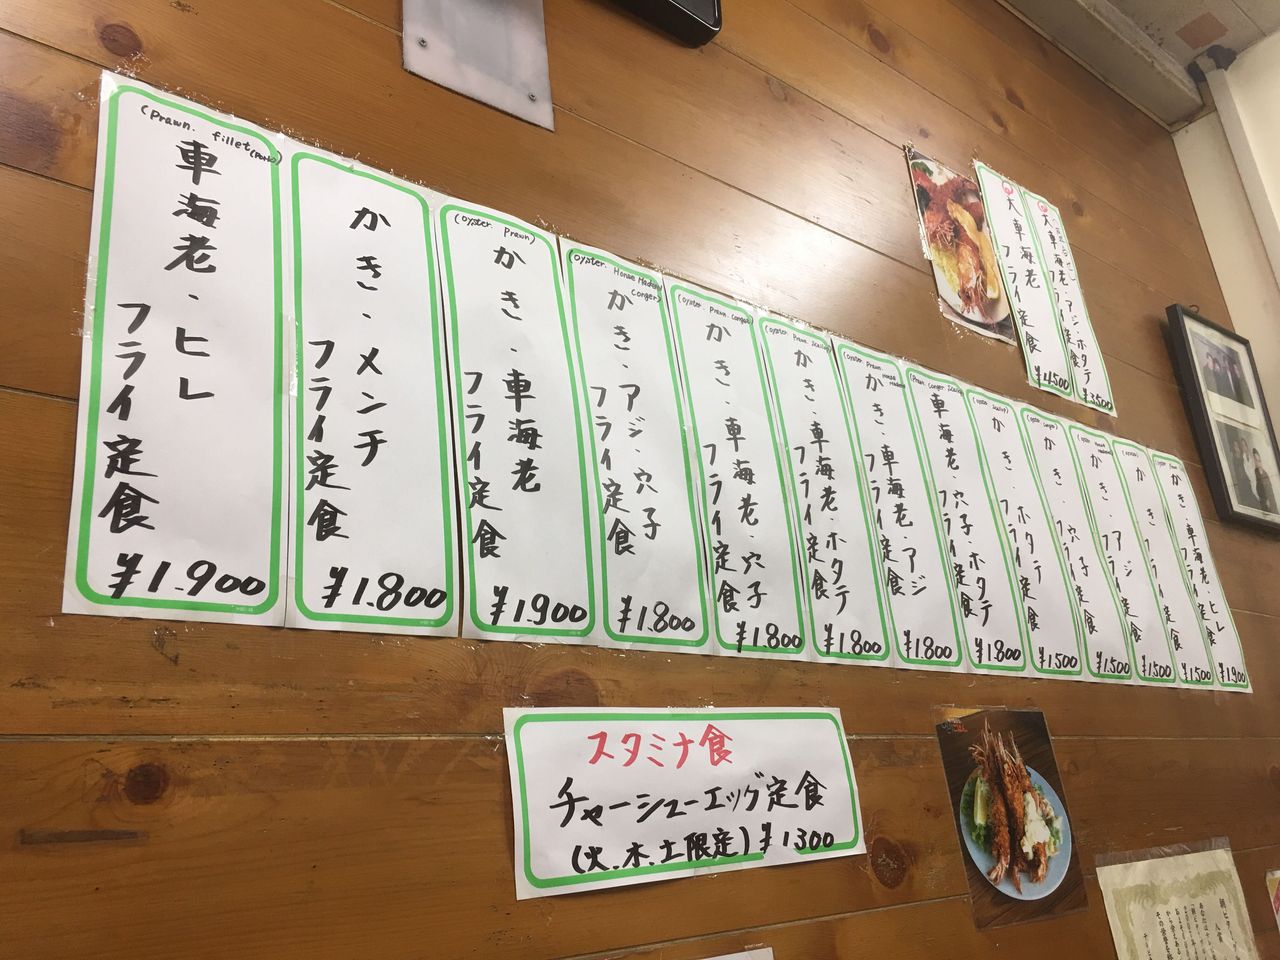 (Prawn. fillet(Pork))
車海老・ヒレ
フライ定食
¥1.900
かき・メンチ
フライ定食
¥1.800
(Oyster. Prawn)
かき・車海老
フライ定食
¥1.900
(Oyster. Horse Mackerel
Conger)
かき・アジ・穴子
フライ定食
¥1.800
(Oyster. Prawn. Conger)
かき・車海老・穴子
フライ定食
¥1.800
(Oyster. Prawn. Scallop)
かき・車海老・ホタテ
フライ定食
¥1.800
(Oyster. Prawn.
かき・車海老・アジ
フライ定食
¥1.800
(Prawn. Conger. Scallop)
車海老・穴子・ホタテ
フライ定食
¥1.800
かき・ホタテ
フライ定食
¥1.500
かき・穴子
フライ定食
¥1.500
かき・アジ
フライ定食
¥1.500
かき
フライ定食
¥1.500
かき・車海老・ヒレ
フライ定食
¥1.900
大車海老
フライ定食
¥4.500
大車海老・アジ・ホタテ
フライ定食
¥3.500
スタミナ食
チャーシューエッグ定食
(火.木.土限定) ¥1300